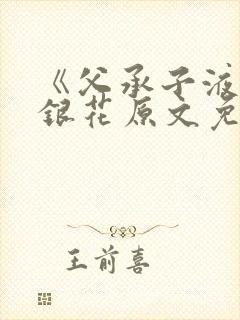 《父承子液
銀花原文免
王前喜